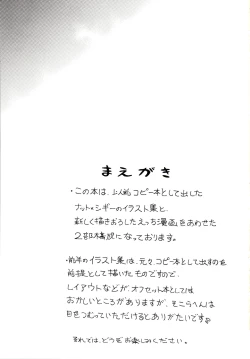 まえがき
・この本は、以前コピー本として出した
ナット×シギーのイラスト集と、
新しく描きおろしたえっち漫画をあわせた
2部構成になっております。
・前半のイラスト集は、元々コピー本として出すのを
前提として描いたものですので、
レイアウトなどが、オフセット本としては
おかしいところがありますが、そこらへんは
目をつむっていただけるとありがたいです。
それでは、どうぞお楽しみください。